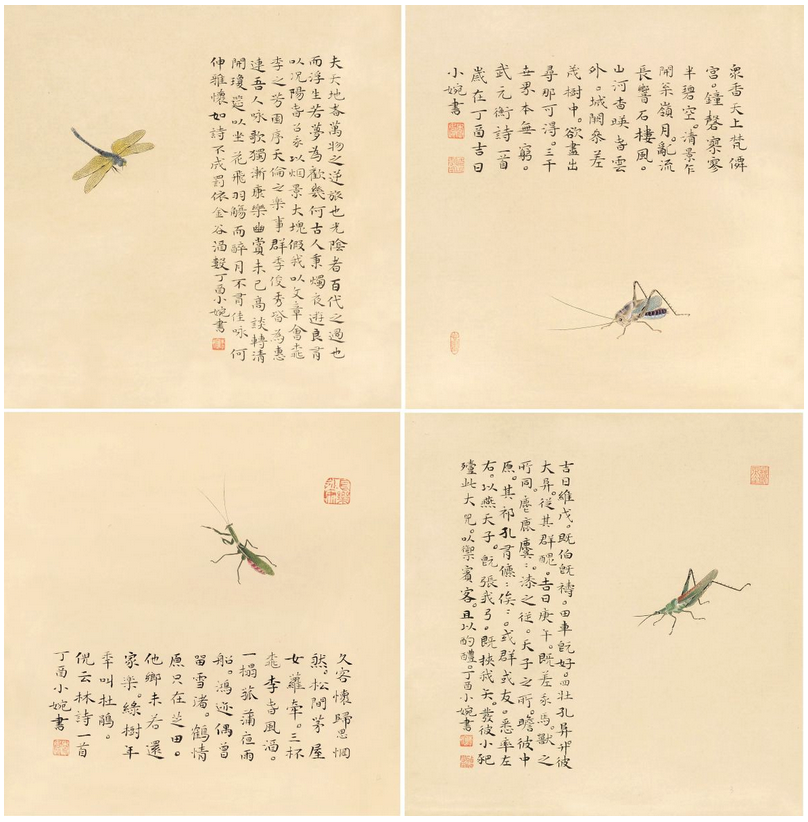 夫天地者萬物之逆旅也光陰者百代之過也
而浮生若夢為歡幾何古人秉燭夜遊良有
以况陽春召我以烟景大塊假我以文章會桃
李之芳園序天倫之樂事群季俊秀皆為惠
連吾人咏歌獨漸康樂幽賞未已高談轉清
開瓊筵以坐花飛羽觴而醉月不有佳咏何
伸雅懷如詩不成罰依金谷酒數丁酉小婉書
衆香天上梵僊
宮。鐘磬寥寥
半碧空。清景乍
開枀嶺月。亂流
長響石樓風。
山河杳暎春雲
外。城闕參差
茂樹中。欲盡出
尋那可得。三千
世界本無窮。
武元衡詩一首
歲在丁酉吉日
小婉書
久客懷歸思惘
然。松間茅屋
女蘿牽。三杯
桃李春風酒。
一榻菰蒲夜雨
船。鴻迹偶曾
留雪渚。鶴情
原只在芝田。
他鄉未若還
家樂。綠樹年
年叫杜鵑。
倪云林詩一首
丁酉小婉書
吉日維戊。既伯既禱。田車既好。四牡孔阜。升彼
大阜。從其群醜。吉日庚午。既差我馬。獸之
所同。麀鹿麌:。漆之從。天子之所。瞻彼中
原。其祁孔有。儦:俟:。或群或友。悉率左
右。以燕天子。既張我弓。既挾我矢。發彼小豝
殪此大兕。以禦賓客。且以酌醴。丁酉小婉書